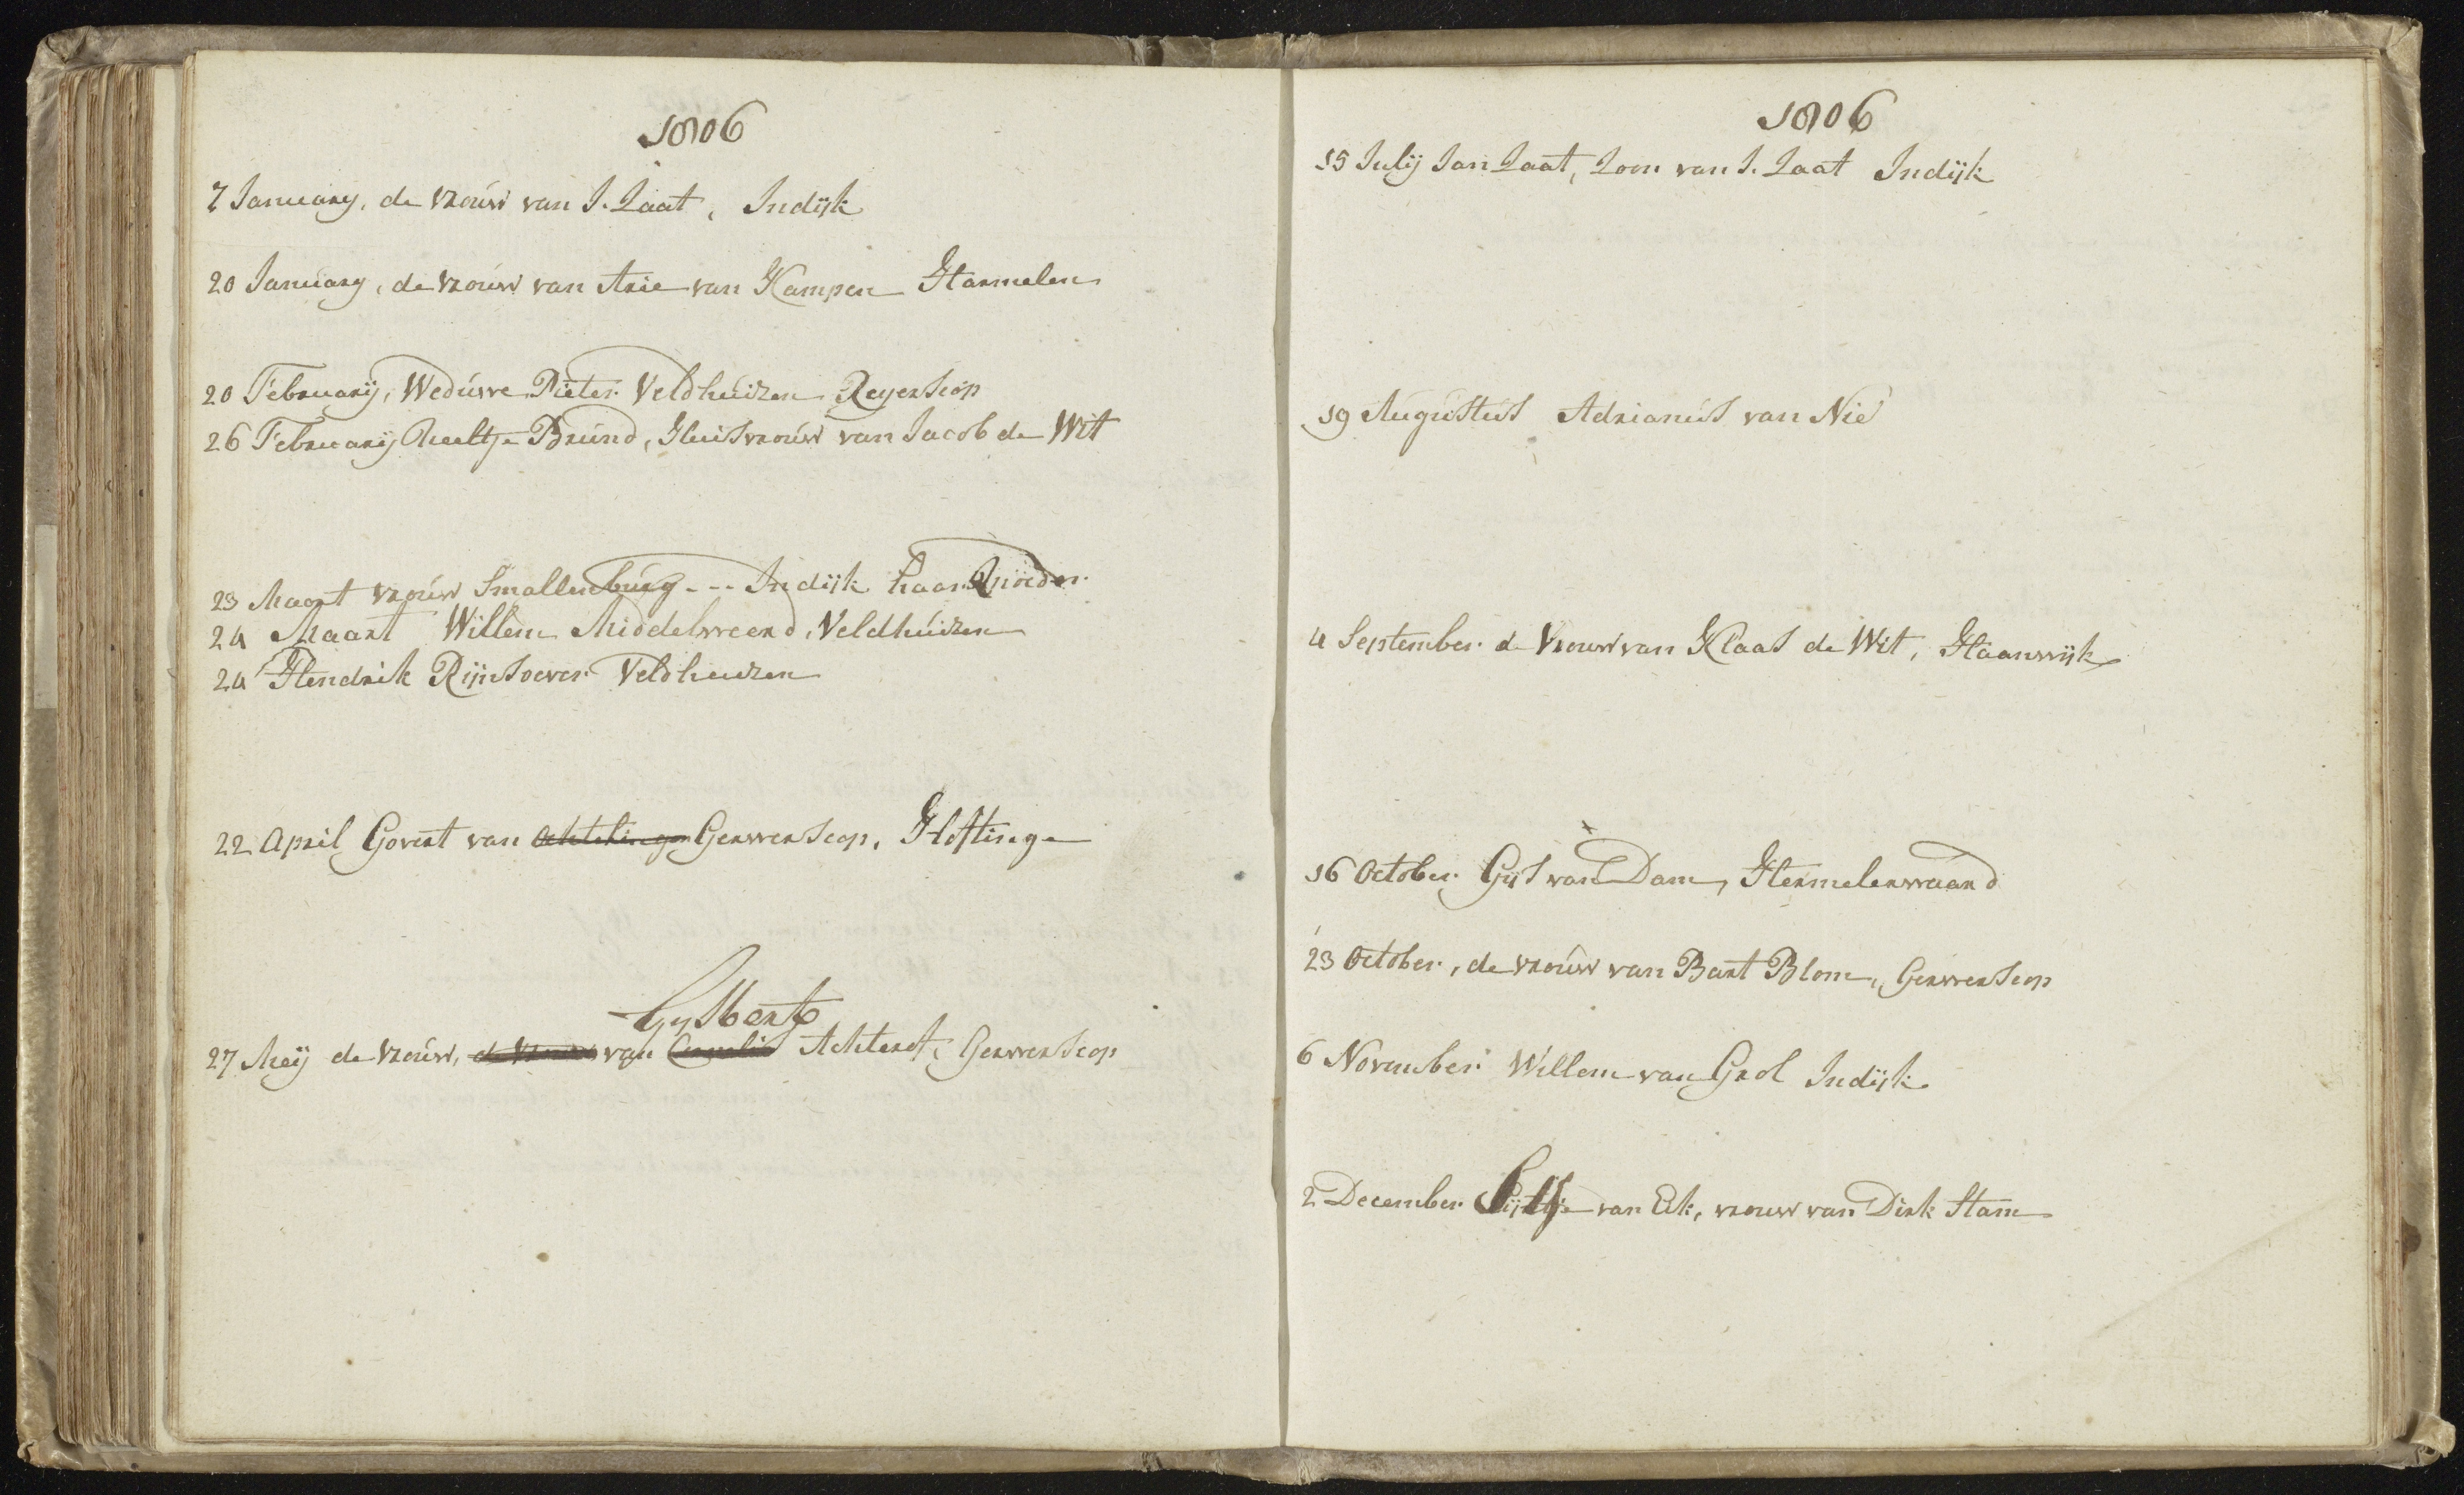 1806
7 January, de vrouw van J. Laat, Indijk
20 January, de vrouw van Arie van Kampen Harmelen
20 February, Weduwe Pieter Veldhuizen Reyerscop
26 February Neeltje Brund, Huisvrouw van Jacob de Wit
23 Maart vrouw Smallenburg --- Indijk haar Moeder
24 Maart Willem Middelweerd, Veldhuizen
24 Hendrik Rijnsoever Veldhuizen
22 April Govert van Gerverscop, Hoftinge
Gysbert
27 Meij de vrouw, de vrouw van Cornelis Achterof, Gerverscop
1806
15 Julij Jan Laat, Zoon van J. Laat Indijk
19 Augustus Adrianus van Nie
4 September de Vrouw van Klaas de Wit, Haanwijk
16 October Gijs van Dam, Hermelerwaard
23 October, de vrouw van Bart Blom, Gerverscop
6 November Willem van Grol Indijk
2 December van Eik, vrouw van Dirk Stam